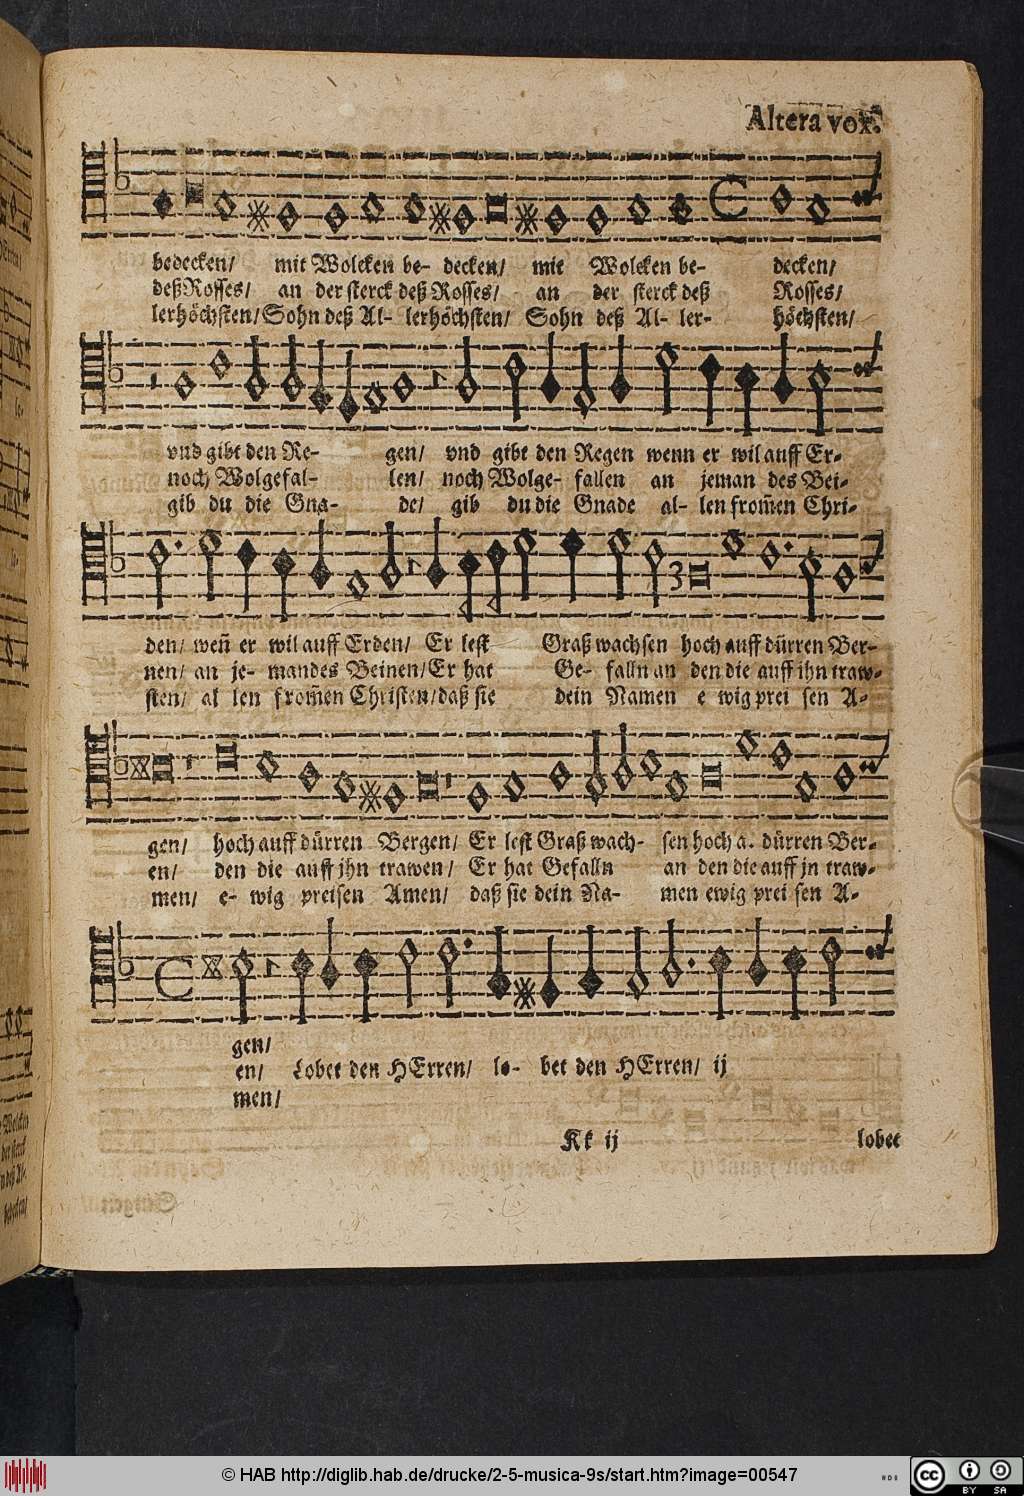 Altera vox.
bedecken/ mit Wolcken be- decken/ mit Wolcken be- decken/
deß Rosses/ an der sterck deß Rosses/ an der sterck deß Rosses/
lerhöchsten/ Sohn deß Al- lerhöchsten/ Sohn deß Al- ler- höchsten/
vnd gibt den Re- gen/ vnd gibt den Regen wenn er wil auff Er-
noch Wolgefal- len/ noch Wolge- fallen an jeman des Bei-
gib du die Gna- de/ gib du die Gnade al- len from̃en Chri-
den/ weñ er wil auff Erden/ Er lest Graß wachsen hoch auff dürren Ber-
nen/ an je- mandes Beinen/ Er hat Ge- falln an den die auff ihn traw-
sten/ al len from̃en Christen/ daß sie dein Namen e wig prei sen A-
gen/ hoch auff dürren Bergen/ Er lest Graß wach- sen hoch a. dürren Ber-
en/ den die auff jhn trawen/ Er hat Gefalln an den die auff jn traw-
men/ e- wig preisen Amen/ daß sie dein Na- men ewig prei sen A-
gen/
en/ Lobet den HErren/ lo- bet den HErren/ ij
men/
Kk ij lobet
© HAB http://diglib.hab.de/drucke/2-5-musica-9s/start.htm?image=00547
cc BY SA